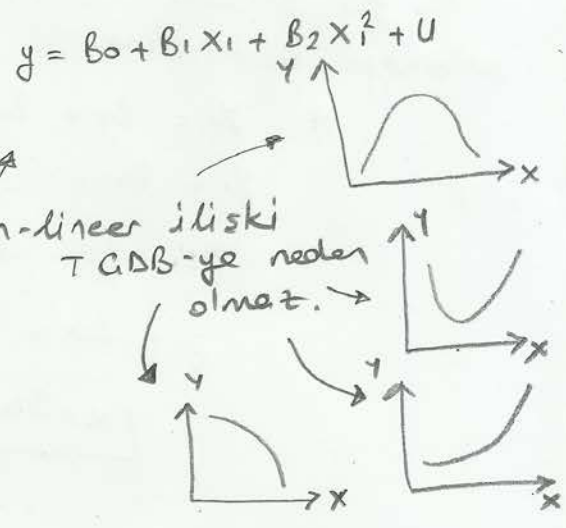 y = B0 + B1 X1 + B2 X1² + U
Y
X
n-lineer ilişki
TGDB-ye neden
olmaz.
Y
X
Y
X
Y
X